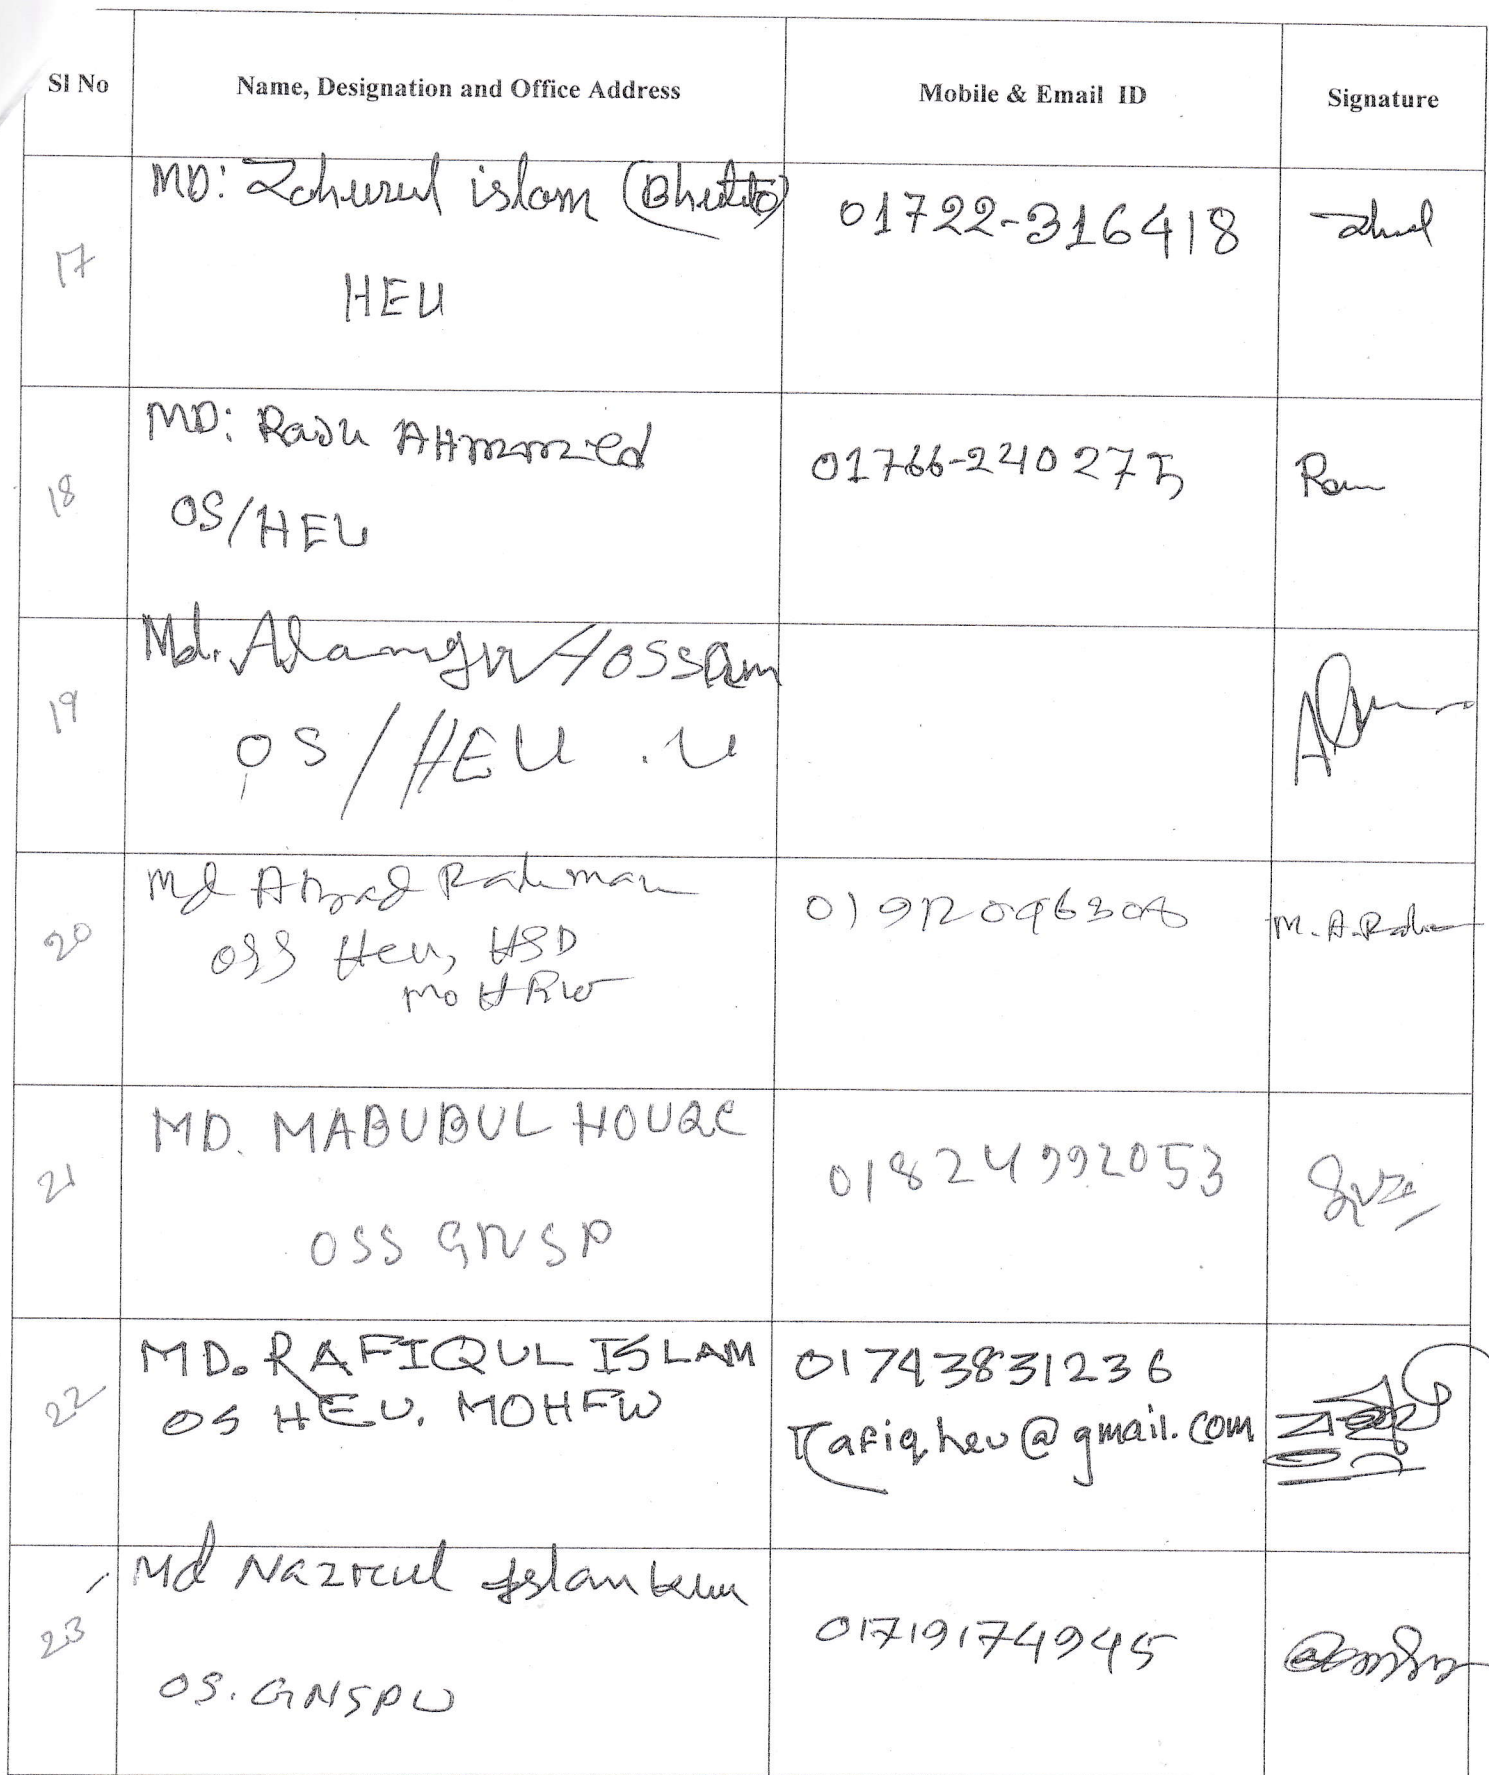 Sl No
Name, Designation and Office Address
Mobile & Email ID
Signature
17
MD: Zohurul islam (Bhutto)
HEU
01722-316418
18
MD: Raju AHmmed
OS/HEU
01766-240275
19
Md. Alamgir Hossain
OS/HEU .U
20
Md Rahman
OSS Heu, HSD
MoHFW
M. A. Rahman
21
MD. MABUBUL HOUQE
OSS GNSP
01824992053
22
MD. RAFIQUL ISLAM
OS HEU. MOHFW
01743831236
rafiqheu@gmail.com
23
Md Nazrul Islam
OS. GNSPU
01719174945